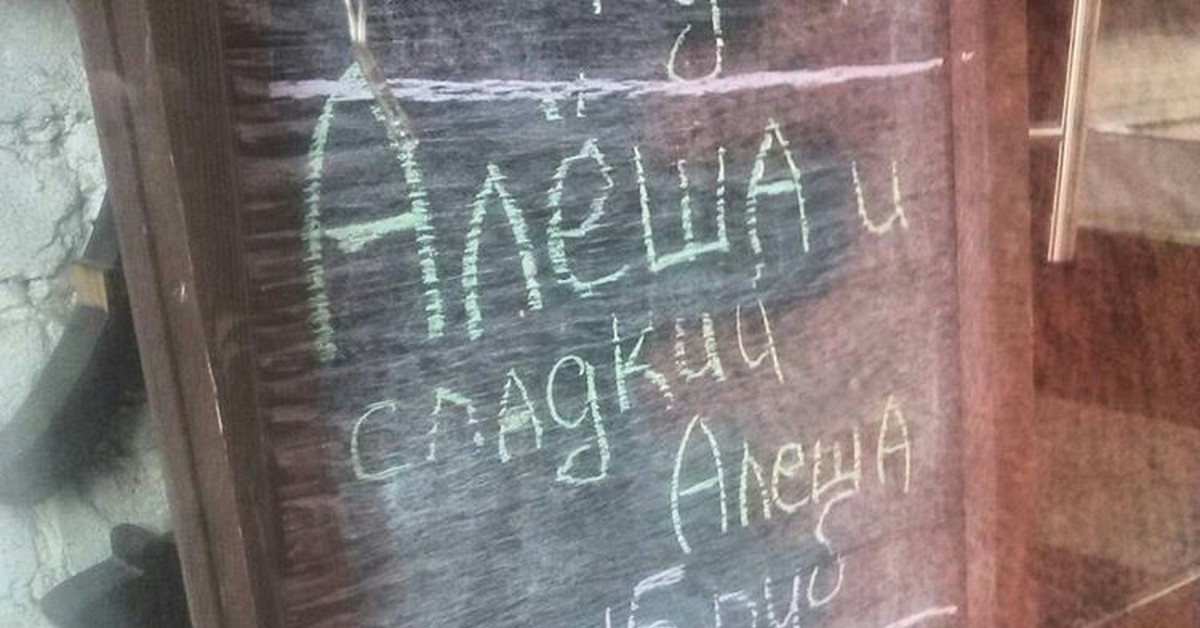 Алёша и
сладкий
Алеша